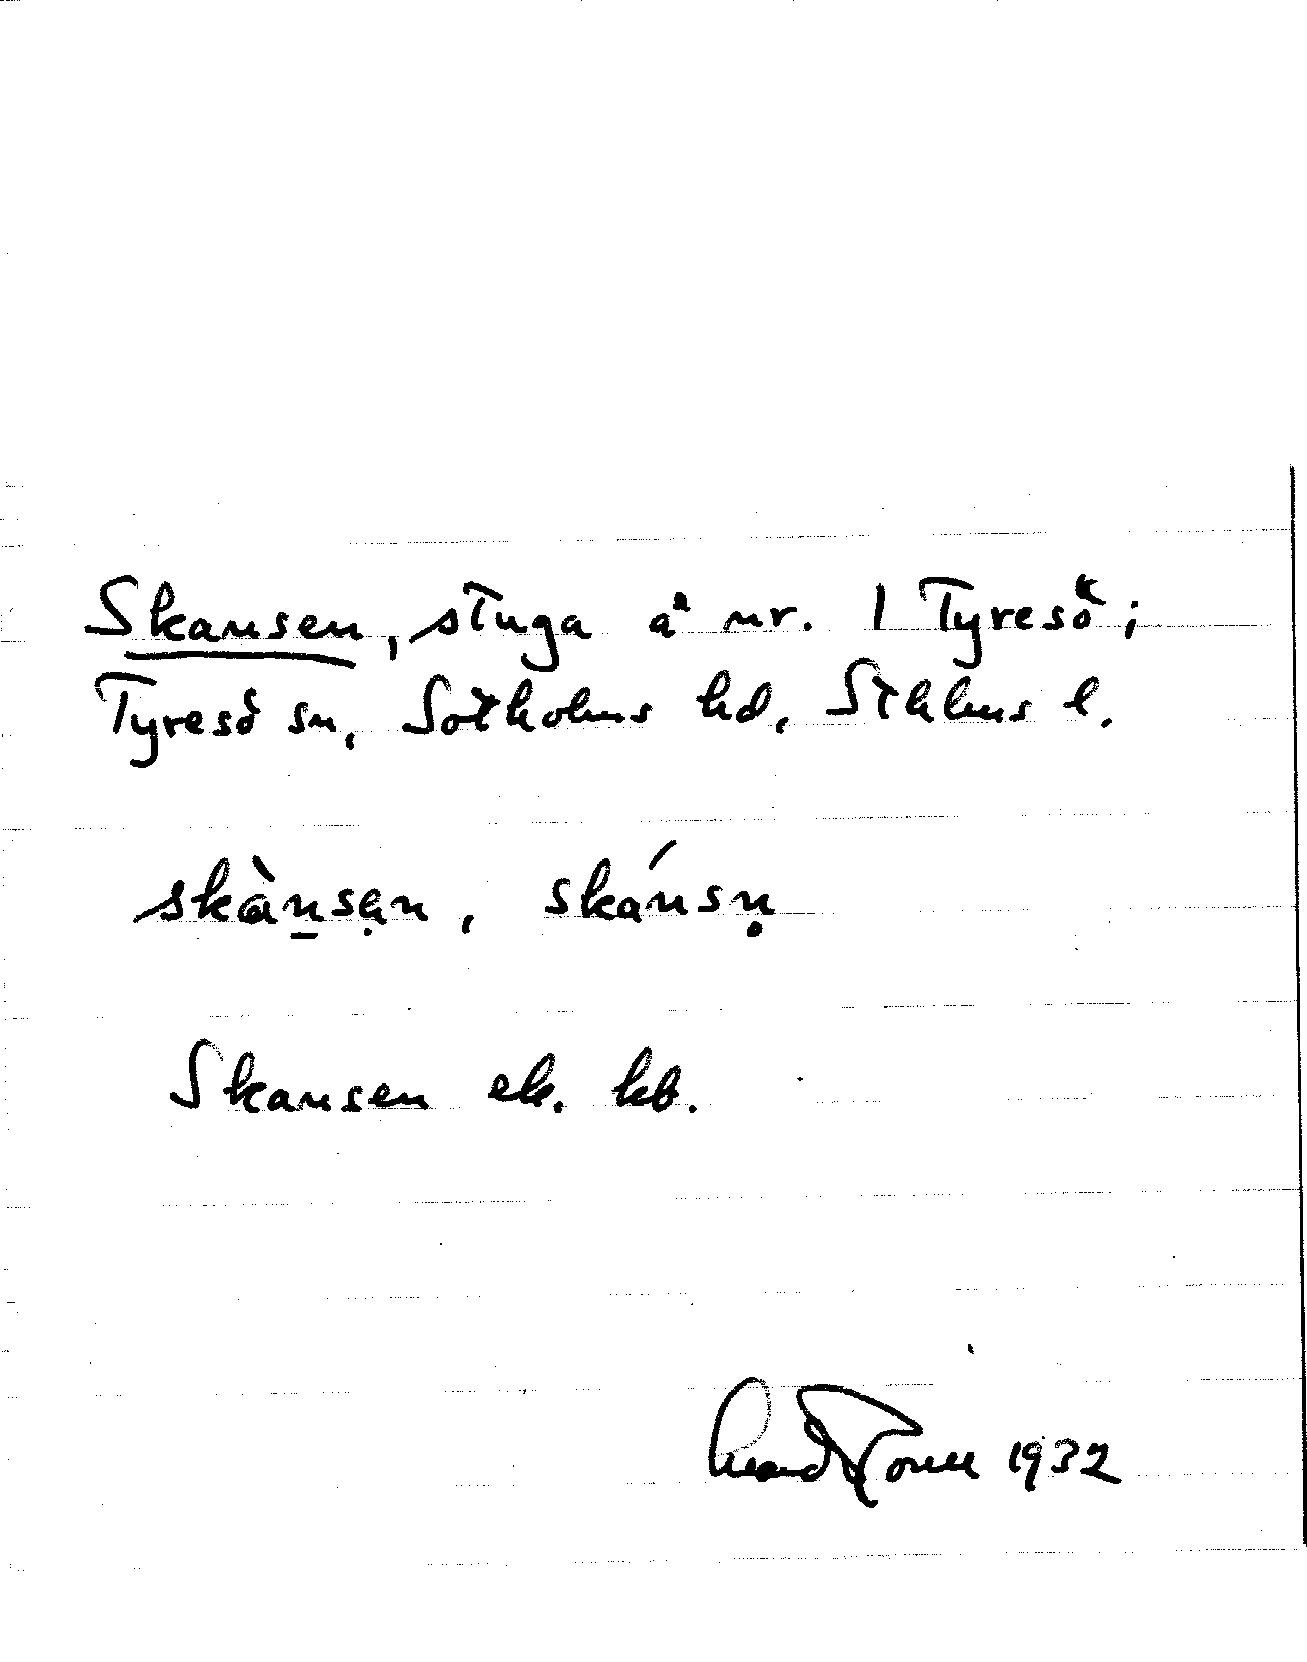 Skansen, stuga å nr. 1 Tyresö;
Tyresö sn, Sotholms hd, Sthlms l.
skànsạn, skánsṇ
Skansen ek. kb.
1932